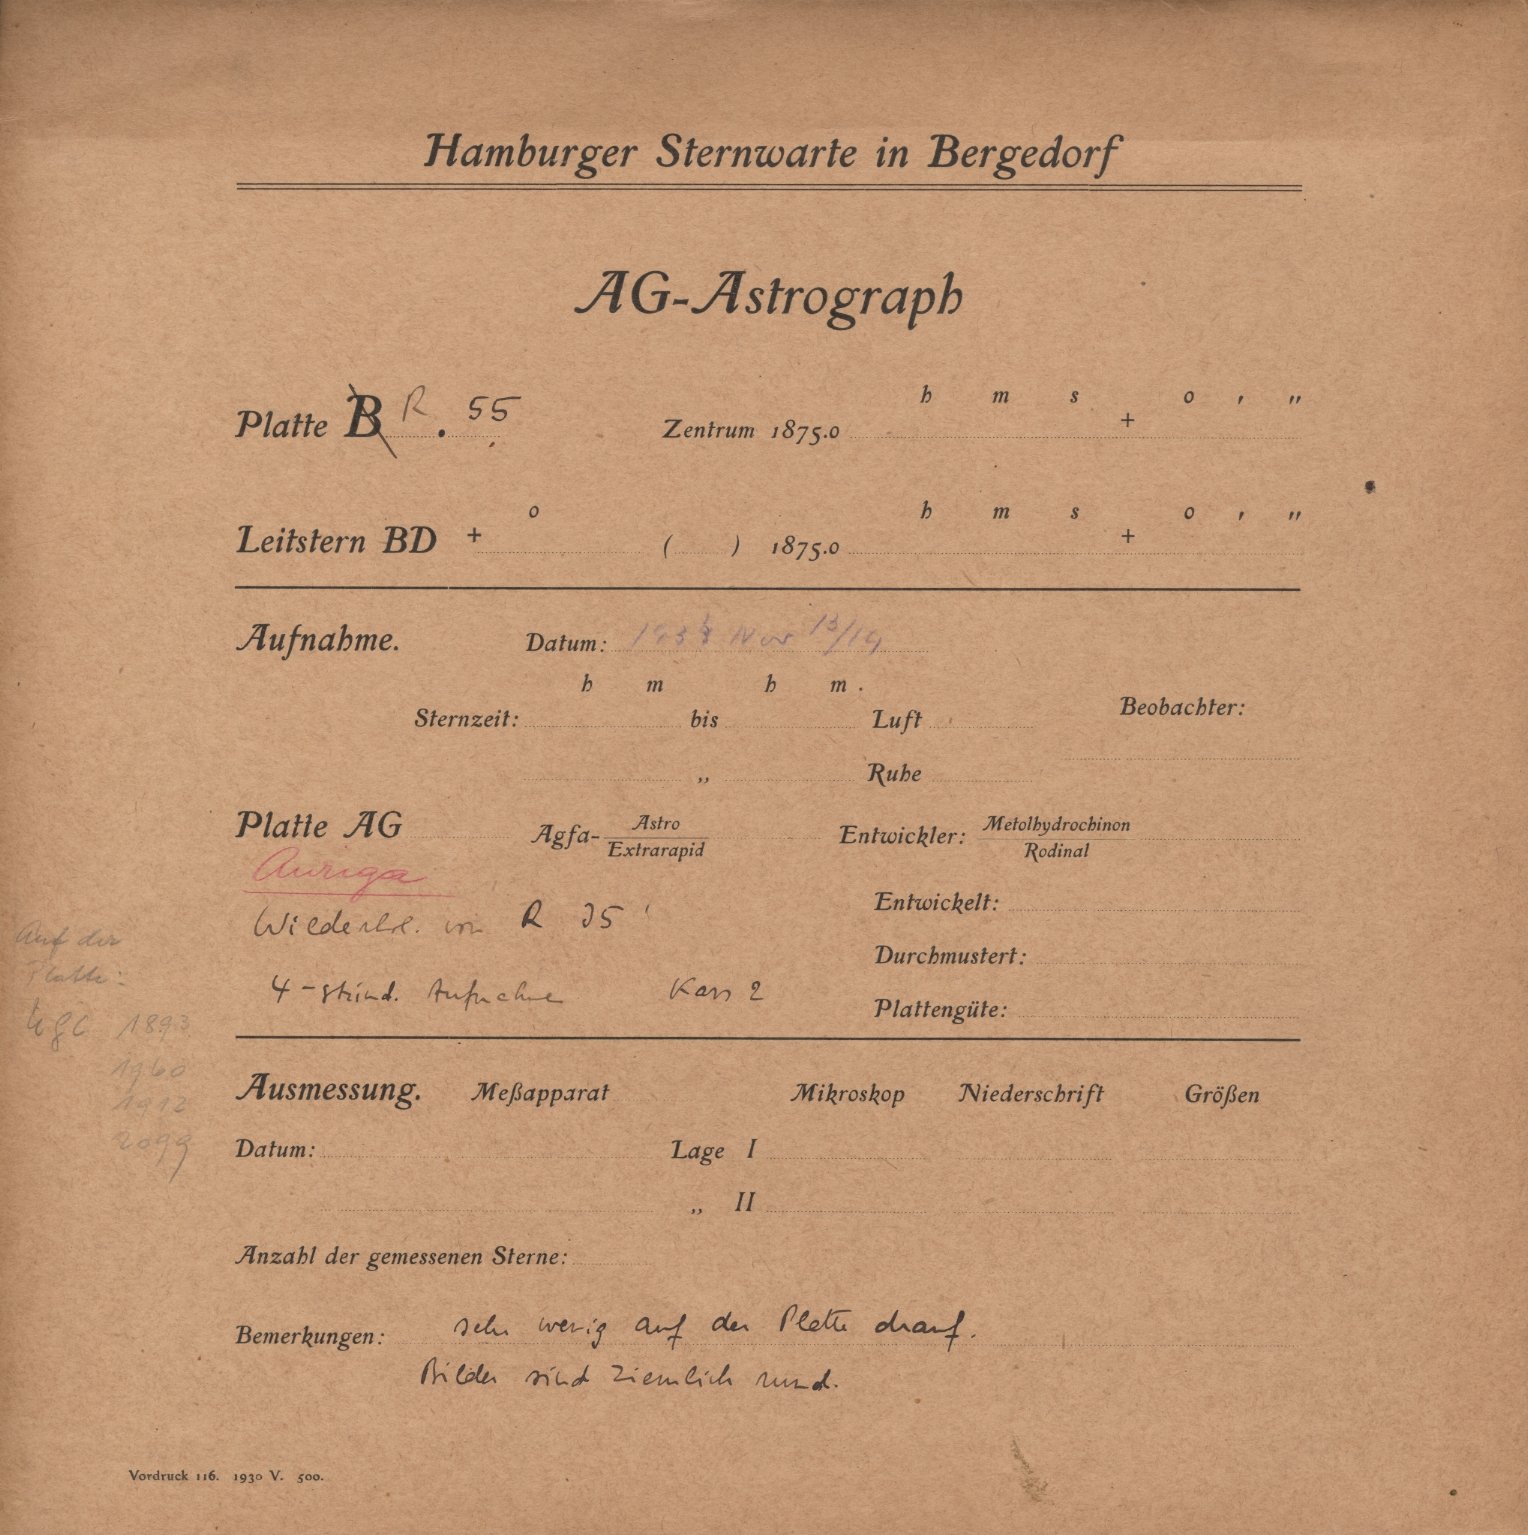 Hamburger Sternwarte in Bergedorf
AG-Astrograph
h m s o ' "
Platte B R . 55 Zentrum 1875.0 +
o h m s o ' "
Leitstern BD + ( ) 1875.0 +
Aufnahme. Datum: Nov 13/14
h m h m .
Sternzeit: bis Luft Beobachter:
„ Ruhe
Platte AG Agfa- Astro Entwickler: Metolhydrochinon
Extrarapid Rodinal
Auriga
Entwickelt:
Wiederhol. von R 35
Auf der
Durchmustert:
Platte:
4-stünd. Aufnahme Kass 2
Plattengüte:
NGC 1893
1960
Ausmessung. Meßapparat Mikroskop Niederschrift Größen
1912
2099
Datum: Lage I
„ II
Anzahl der gemessenen Sterne:
Bemerkungen: sehr wenig auf der Platte drauf.
Bilder sind ziemlich rund.
Vordruck 116. 1930 V. 500.